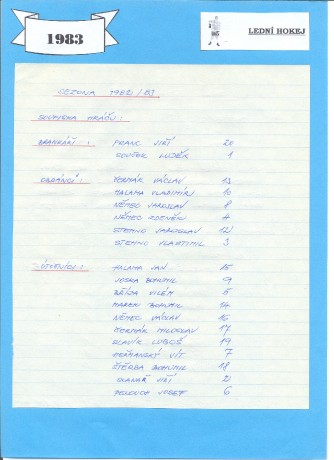 1983
LEDNÍ HOKEJ
SEZONA 1982/83
SOUPISKA HRÁČŮ:
BRANKÁŘI: FRANC JIŘÍ 20
SOUČEK LUDĚK 1
OBRÁNCI: ČERMÁK VÁCLAV 13
TALAMA VLADIMÍR 10
NĚMEC JAROSLAV 8
NĚMEC ZDENĚK 4
STEHNO JAROSLAV 12
STEHNO VLASTIMIL 3
ÚTOČNÍCI: JAN 15
BOHUMIL 9
BŘÍZA VILÉM 5
MAREK BOHUMIL 14
NĚMEC VÁCLAV 16
ČERMÁK MILOSLAV 17
SLAVÍK LUBOŠ 19
HEŘMANSKÝ VÍT 7
ŠTĚRBA BOHUMIL 18
JIŘÍ 21
PELOUCH JOSEF 6